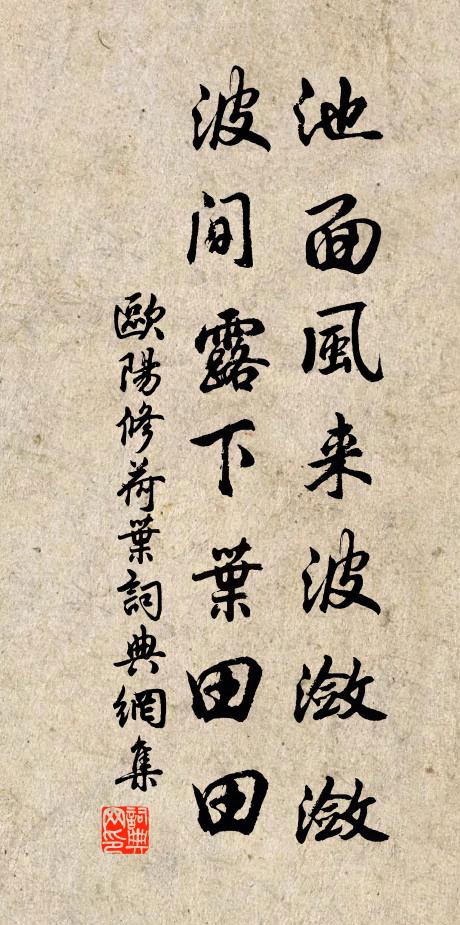 池面風来波潋潋
波间露下葉田田
歐陽修荷葉詞典網集
詞典网印